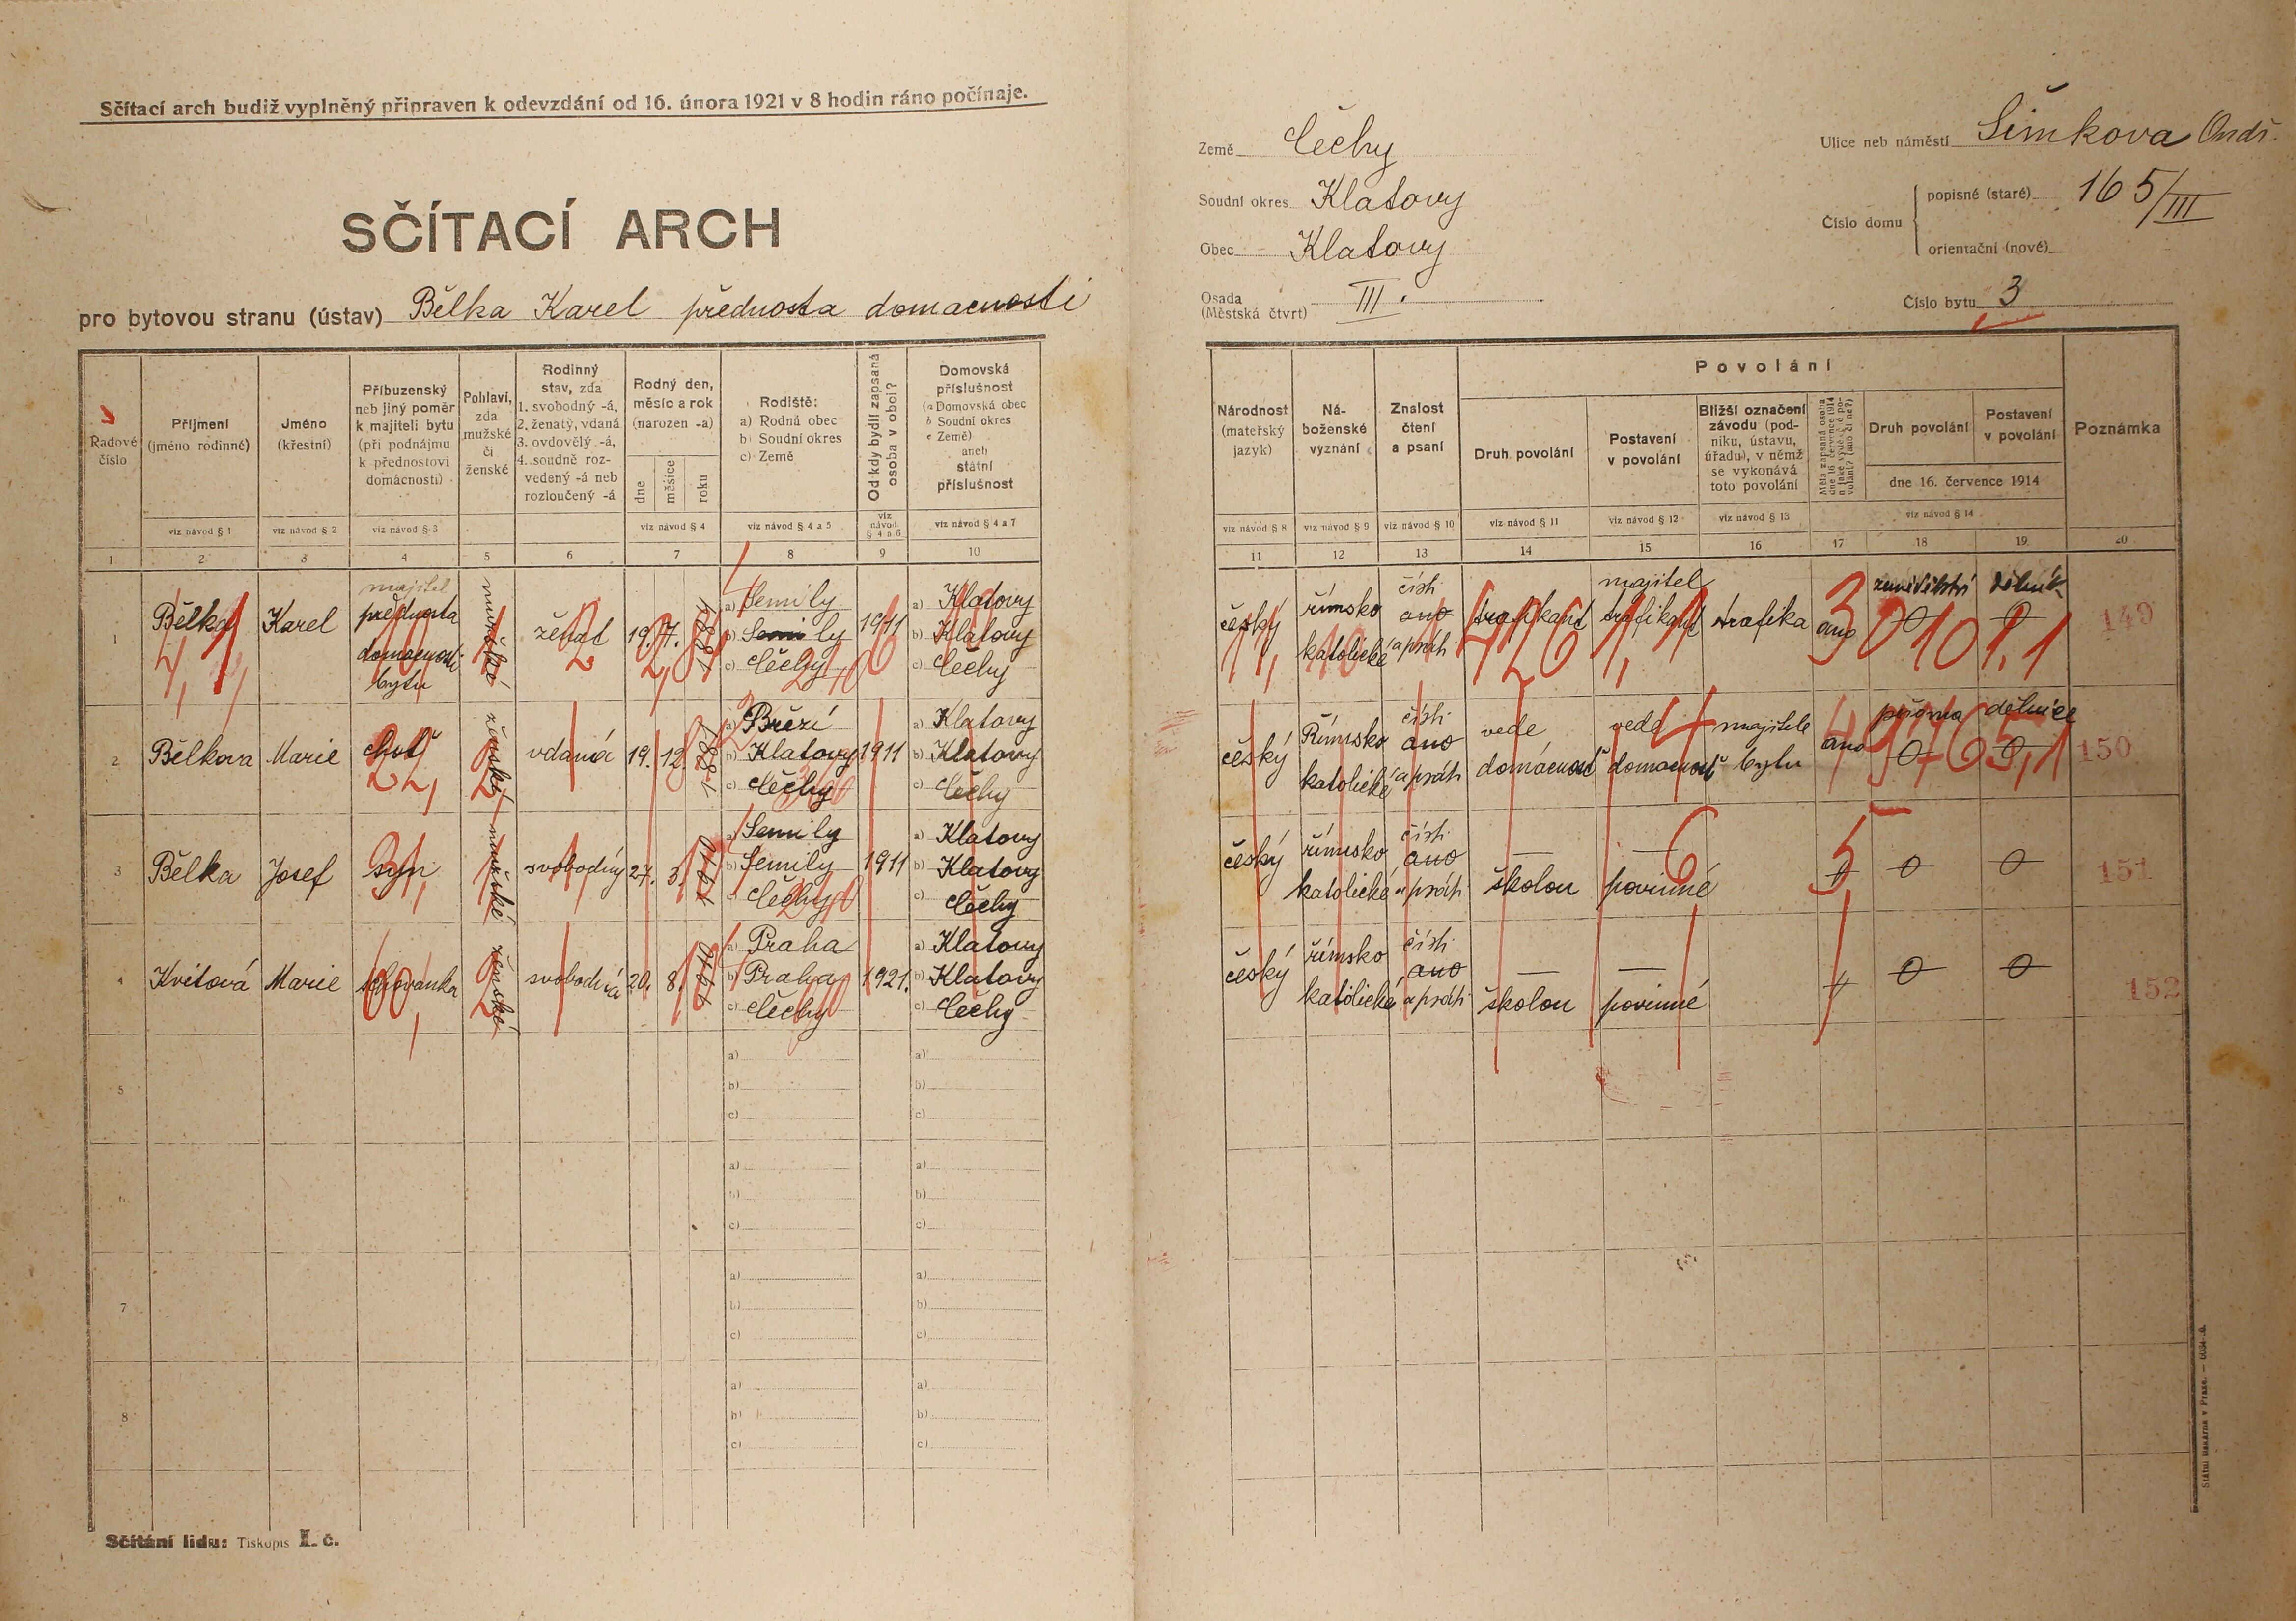 Sčítací arch budiž vyplněný připraven k odevzdání od 16. února 1921 v 8 hodin ráno počínaje.
SČÍTACÍ ARCH
pro bytovou stranu (ústav) Bělka Karel přednosta domacnosti
Země Čechy
Soudní okres Klatovy
Obec Klatovy
Osada
(Městská čtvrť) III.
Ulice neb náměstí Šimkova Ondř.
Číslo domu
popisné (staré) 165/III
orientační (nové)
Číslo bytu 3
Řadové číslo
Příjmení (jméno rodinné)
Jméno (křestní)
Příbuzenský neb jiný poměr k majiteli bytu (při podnájmu k přednostovi domácnosti)
Pohlaví, zda mužské či ženské
Rodinný stav, zda 1. svobodný -á, 2. ženatý, vdaná 3. ovdovělý -á, 4. soudně rozvedený -á neb rozloučený -á
Rodný den, měsíc a rok (narozen -a)
dne měsíce roku
Rodiště: a) Rodná obec b) Soudní okres c) Země
Od kdy bydlí zapsaná osoba v obci?
Domovská příslušnost (a Domovská obec b Soudní okres c Země) aneb státní příslušnost
viz návod § 1 viz návod § 2 viz návod § 3 viz návod § 4 viz návod § 4 a 5 viz návod § 4 a 6 viz návod § 4 a 7
1 2 3 4 5 6 7 8 9 10
Národnost (mateřský jazyk)
Náboženské vyznání
Znalost čtení a psaní
Povolání
Druh povolání
Postavení v povolání
Bližší označení závodu (podniku, ústavu, úřadu), v němž se vykonává toto povolání
Měla zapsaná osoba dne 16 července 1914 n jaké výdělč é povolání? (ano či ne?)
Druh povolání
Postavení v povolání
dne 16. července 1914
Poznámka
viz návod § 8 viz návod § 9 viz návod § 10 viz návod § 11 viz návod § 12 viz návod § 13 viz návod § 14
11 12 13 14 15 16 17 18 19 20
1 Bělka Karel majitel přednosta domacnosti bytu mužské ženat 19. 7. a) Semily b) Semily c) Čechy 1911 a) Klatovy b) Klatovy c) Čechy
český římsko katolické čísti ano a psáti trafikant majitel trafikant trafika ano zemědělství 0 dělník 0 149
2 Bělkova Marie choť ženské vdaná 19. 12 1881 a) Březí b) Klatovy c) Čechy 1911 a) Klatovy b) Klatovy c) Čechy
český Římsko katolické čísti ano a psáti vede domácnosť vede domacnosť majitele bytu ano 0 dělnice 0 150
3 Bělka Josef syn mužské svobodný 27. 3. 1910 a) Semily b) Semily c) Čechy 1911 a) Klatovy b) Klatovy c) Čechy
český římsko katolické čísti ano a psáti — školou — povinné 0 0 151
4 Kvitová Marie schovanka ženské svobodná 20. 8. 1910 a) Praha b) Praha c) Čechy 1921. a) Klatovy b) Klatovy c) Čechy
český římsko katolické čísti ano a psáti — školou — povinné 0 0 152
5 a) b) c) a) b) c)
6 a) b) c) a) b) c)
7 a) b) c) a) b) c)
8 a) b) c) a) b) c)
Sčítání lidu: Tiskopis I. č.
Státní tiskárna v Praze.